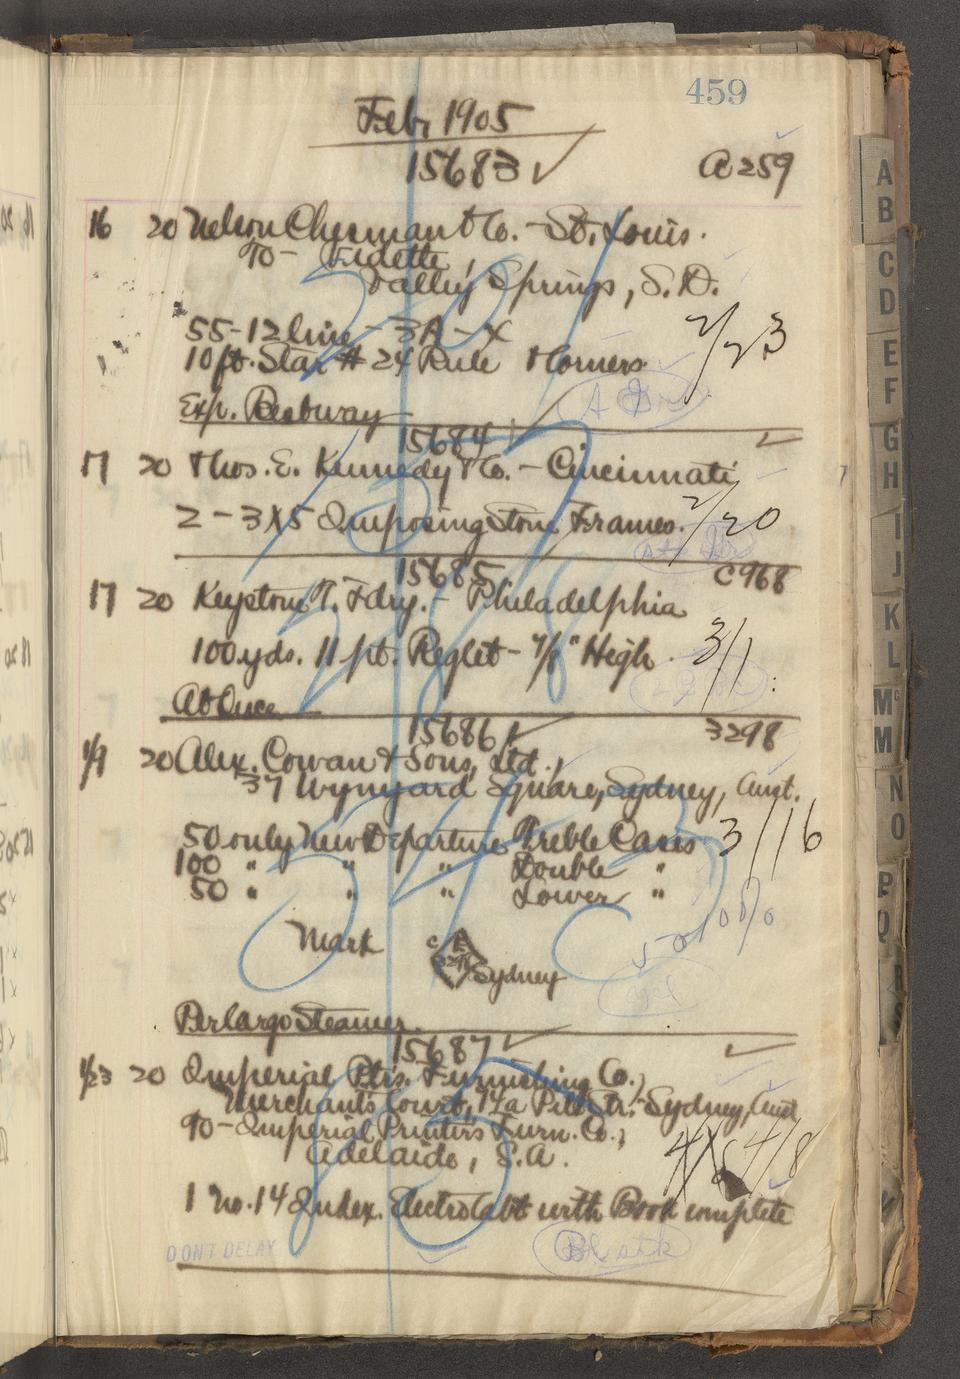 459
Feb, 1905
15683 ✓ A259
16 20 Nelson Chesman & Co. - St. Louis.
To - Vidette,
Valley Springs, S.D.
55-12 line - 3A - X 2/23
10 ft. Star # 24 Rule & Corners
Exp.
15684
17 20 Thos. E. Kennedy & Co. - Cincinnati
2 - 3X5 Imposing Stone Frames. 2/20
15685 C968
17 20 Keystone T. Fdry. - Philadelphia
100 yds. 11 pt. Reglet - 7/8" High. 3/1
At Once
15686 ✓ 3298
1/9 20 Alex. Cowan & Sons, Ltd.,
37 Wynyard Square, Sydney, Aust.
50 only New Departure Treble Cases 3/16
100 " " " Double "
50 " " " Lower "
Mark Sydney
Per Cargo Steamer.
15687 ✓
1/23 20 Imperial Ptrs. Furnishing Co.,
Merchants Court, 14a Pitt Str. - Sydney, Aust
To - Imperial Printers Furn. Co.,
Adelaide, S.A. 4/8
1 No. 14 Index. Electro Cabt with Book complete
DONT DELAY
A
B
C
D
E
F
G
H
I
J
K
L
Mc
M
N
O
P
Q
R
S